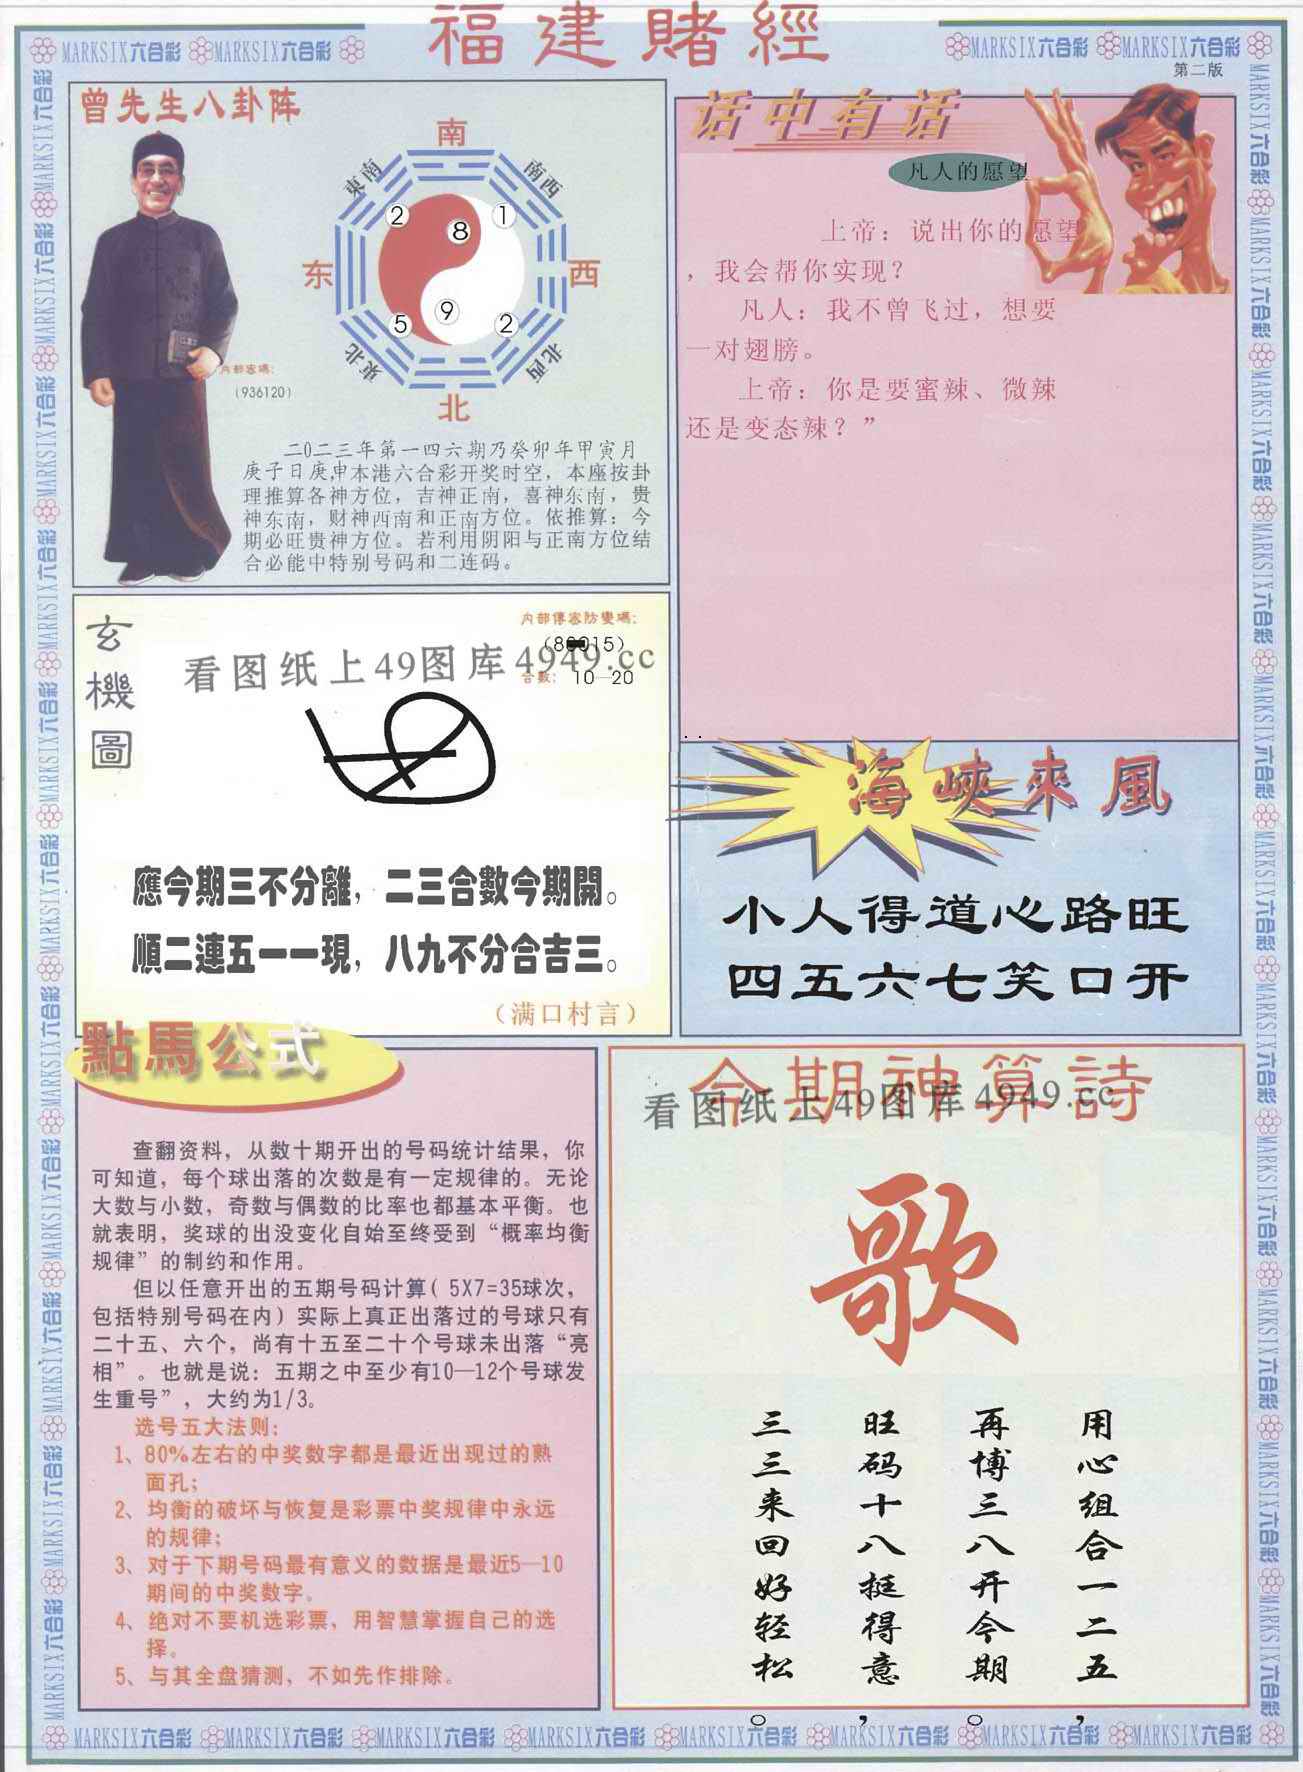 福建賭經
MARKSIX六合彩 MARKSIX六合彩
MARKSIX六合彩 MARKSIX六合彩
第二版
曾先生八卦阵
南
東南
南西
2
8
1
东
西
5
9
2
東北
北西
北
内部密碼:
(936120)
二0二三年第一四六期乃癸卯年甲寅月
庚子日庚申本港六合彩开奖时空，本座按卦
理推算各神方位，吉神正南，喜神东南，贵
神东南，财神西南和正南方位。依推算：今
期必旺贵神方位。若利用阴阳与正南方位结
合必能中特别号码和二连码。
话中有话
凡人的愿望
上帝：说出你的愿望
，我会帮你实现？
凡人：我不曾飞过，想要
一对翅膀。
上帝：你是要蜜辣、微辣
还是变态辣？”
玄機圖
内部傳密防變碼:
看图纸上49图库4949.cc
合數: 10—20
應今期三不分離，二三合數今期開。
順二連五一一現，八九不分合吉三。
（满口村言）
海峽來風
小人得道心路旺
四五六七笑口开
點馬公式
查翻资料，从数十期开出的号码统计结果，你
可知道，每个球出落的次数是有一定规律的。无论
大数与小数，奇数与偶数的比率也都基本平衡。也
就表明，奖球的出没变化自始至终受到“概率均衡
规律”的制约和作用。
但以任意开出的五期号码计算( 5X7=35球次，
包括特别号码在内）实际上真正出落过的号球只有
二十五、六个，尚有十五至二十个号球未出落“亮
相”。也就是说：五期之中至少有10—12个号球发
生重号”，大约为1/3。
选号五大法则:
1、80%左右的中奖数字都是最近出现过的熟
面孔;
2、均衡的破坏与恢复是彩票中奖规律中永远
的规律;
3、对于下期号码最有意义的数据是最近5—10
期间的中奖数字。
4、绝对不要机选彩票，用智慧掌握自己的选
择。
5、与其全盘猜测，不如先作排除。
今期神算詩
看图纸上49图库4949.cc
歌
用心组合一二五，
再博三八开今期。
旺码十八挺得意，
三三来回好轻松。
MARKSIX六合彩 MARKSIX六合彩 MARKSIX六合彩 MARKSIX六合彩 MARKSIX六合彩 MARKSIX六合彩 MARKSIX六合彩 MARKSIX六合彩